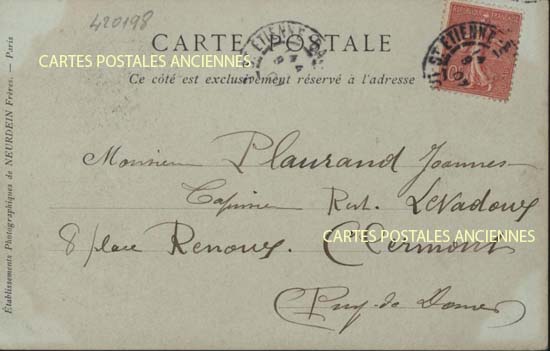 420198
CARTE POSTALE
CARTES POSTALES ANCIENNES
Ce côté est exclusivement réservé à l'adresse
ST ETIENNE
ST ETIENNE
Monsieur Plaurand Joannes
Rest. LeVadoux
8 place Renoux. Clermont
CARTES POSTALES ANCIENNES
Puy-de Dome
Établissements Photographiques de NEURDEIN Frères. — Paris